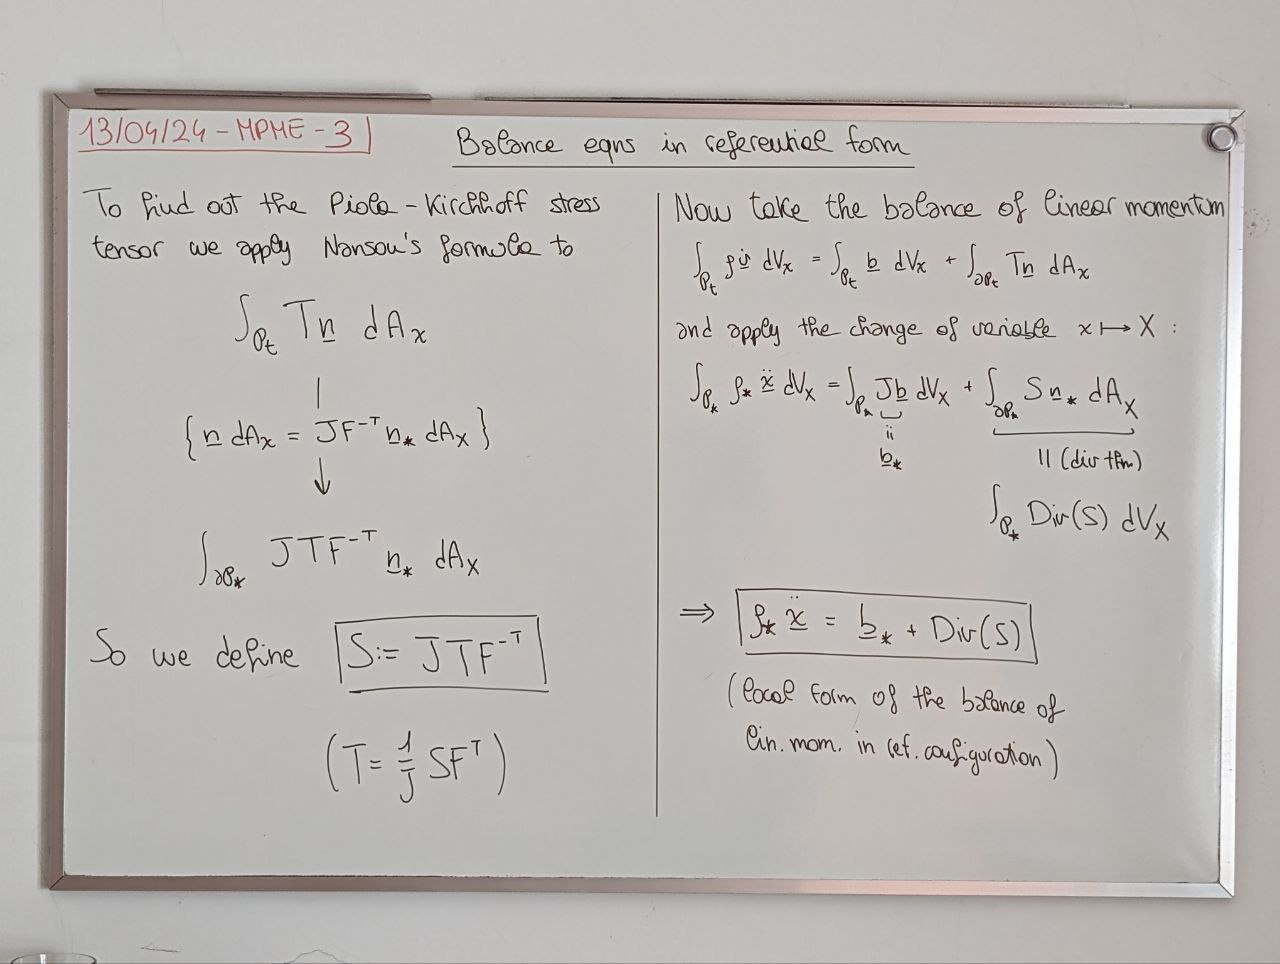 13/04/24 - MPME - 3
Balance eqns in referential form
To find out the Piola - Kirchhoff stress
tensor we apply Nanson's formula to
∫_{𝒫_t} T n̲ dA_x
{ n̲ dA_x = J F^{-T} n̲_* dA_X }
↓
∫_{∂𝒫_*} J T F^{-T} n̲_* dA_X
So we define S := J T F^{-T}
(T = 1/J S F^T)
Now take the balance of linear momentum
∫_{𝒫_t} ρ v̲̇ dV_x = ∫_{𝒫_t} b̲ dV_x + ∫_{∂𝒫_t} T n̲ dA_x
and apply the change of variable x ↦ X :
∫_{𝒫_*} ρ_* ẍ̲ dV_X = ∫_{𝒫_*} J b̲ dV_X + ∫_{∂𝒫_*} S n̲_* dA_X
=: b̲_*
|| (div thm)
∫_{𝒫_*} Div(S) dV_X
⇒ ρ_* ẍ̲ = b̲_* + Div(S)
(local form of the balance of
lin. mom. in ref. configuration)